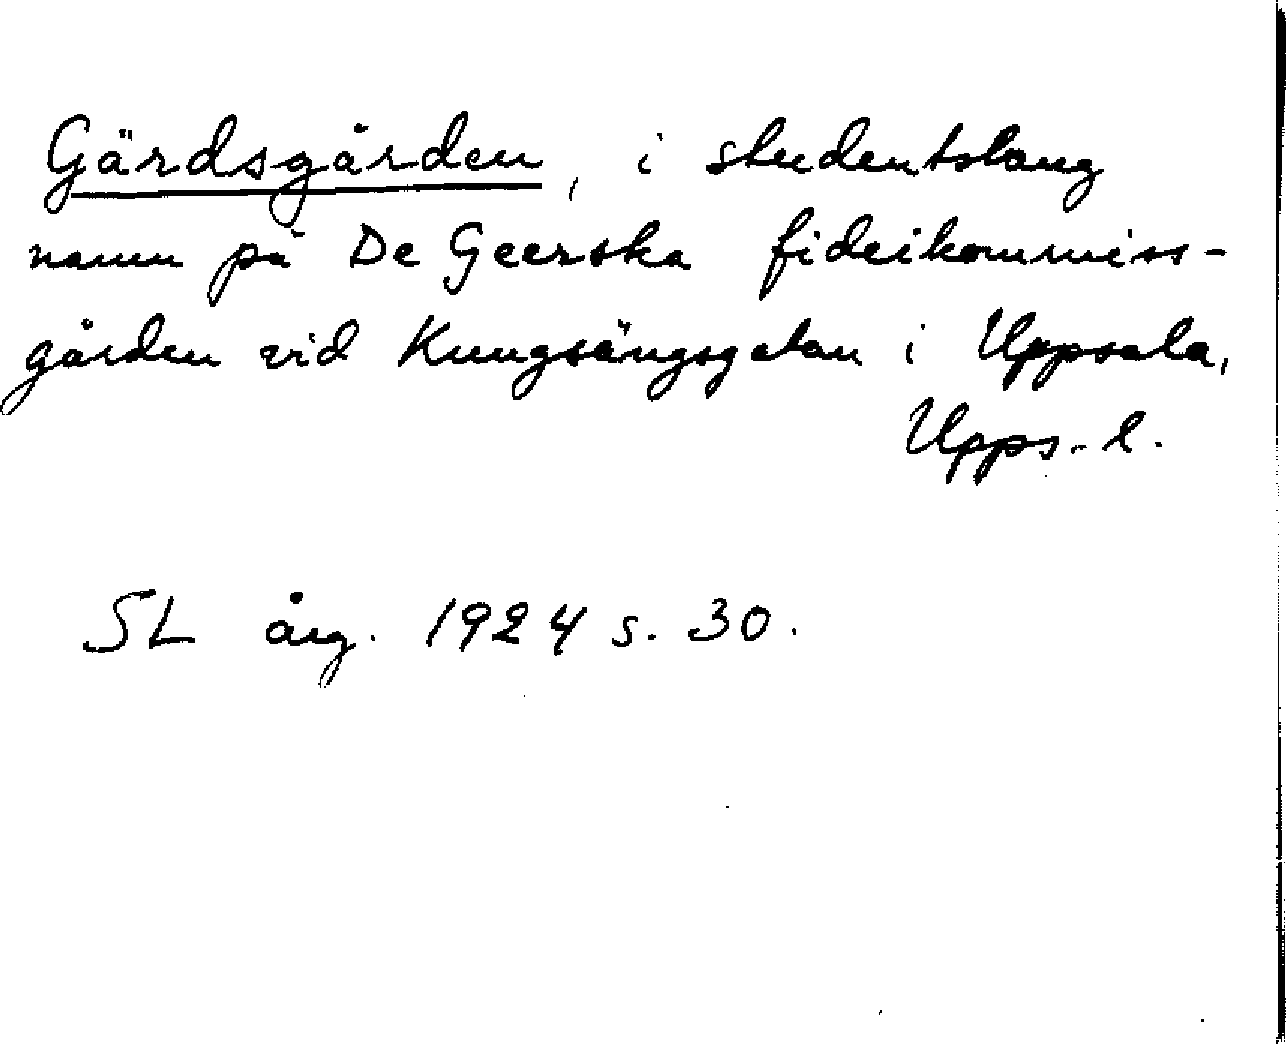 Gärdsgården, i studentslang
namn på De Geerska fideikommiss-
gården vid Kungsängsgatan i Uppsala,
Upps. l.
SL årg. 1924 s. 30.